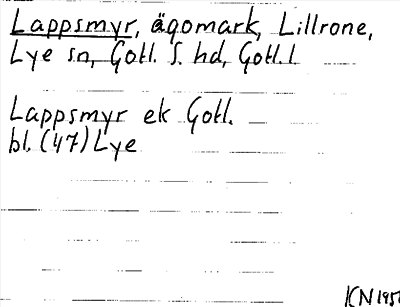 Lappsmyr, ägomark, Lillrone,
Lye sn, Gotl. S. hd, Gotl. l
Lappsmyr ek Gotl.
bl. (47) Lye